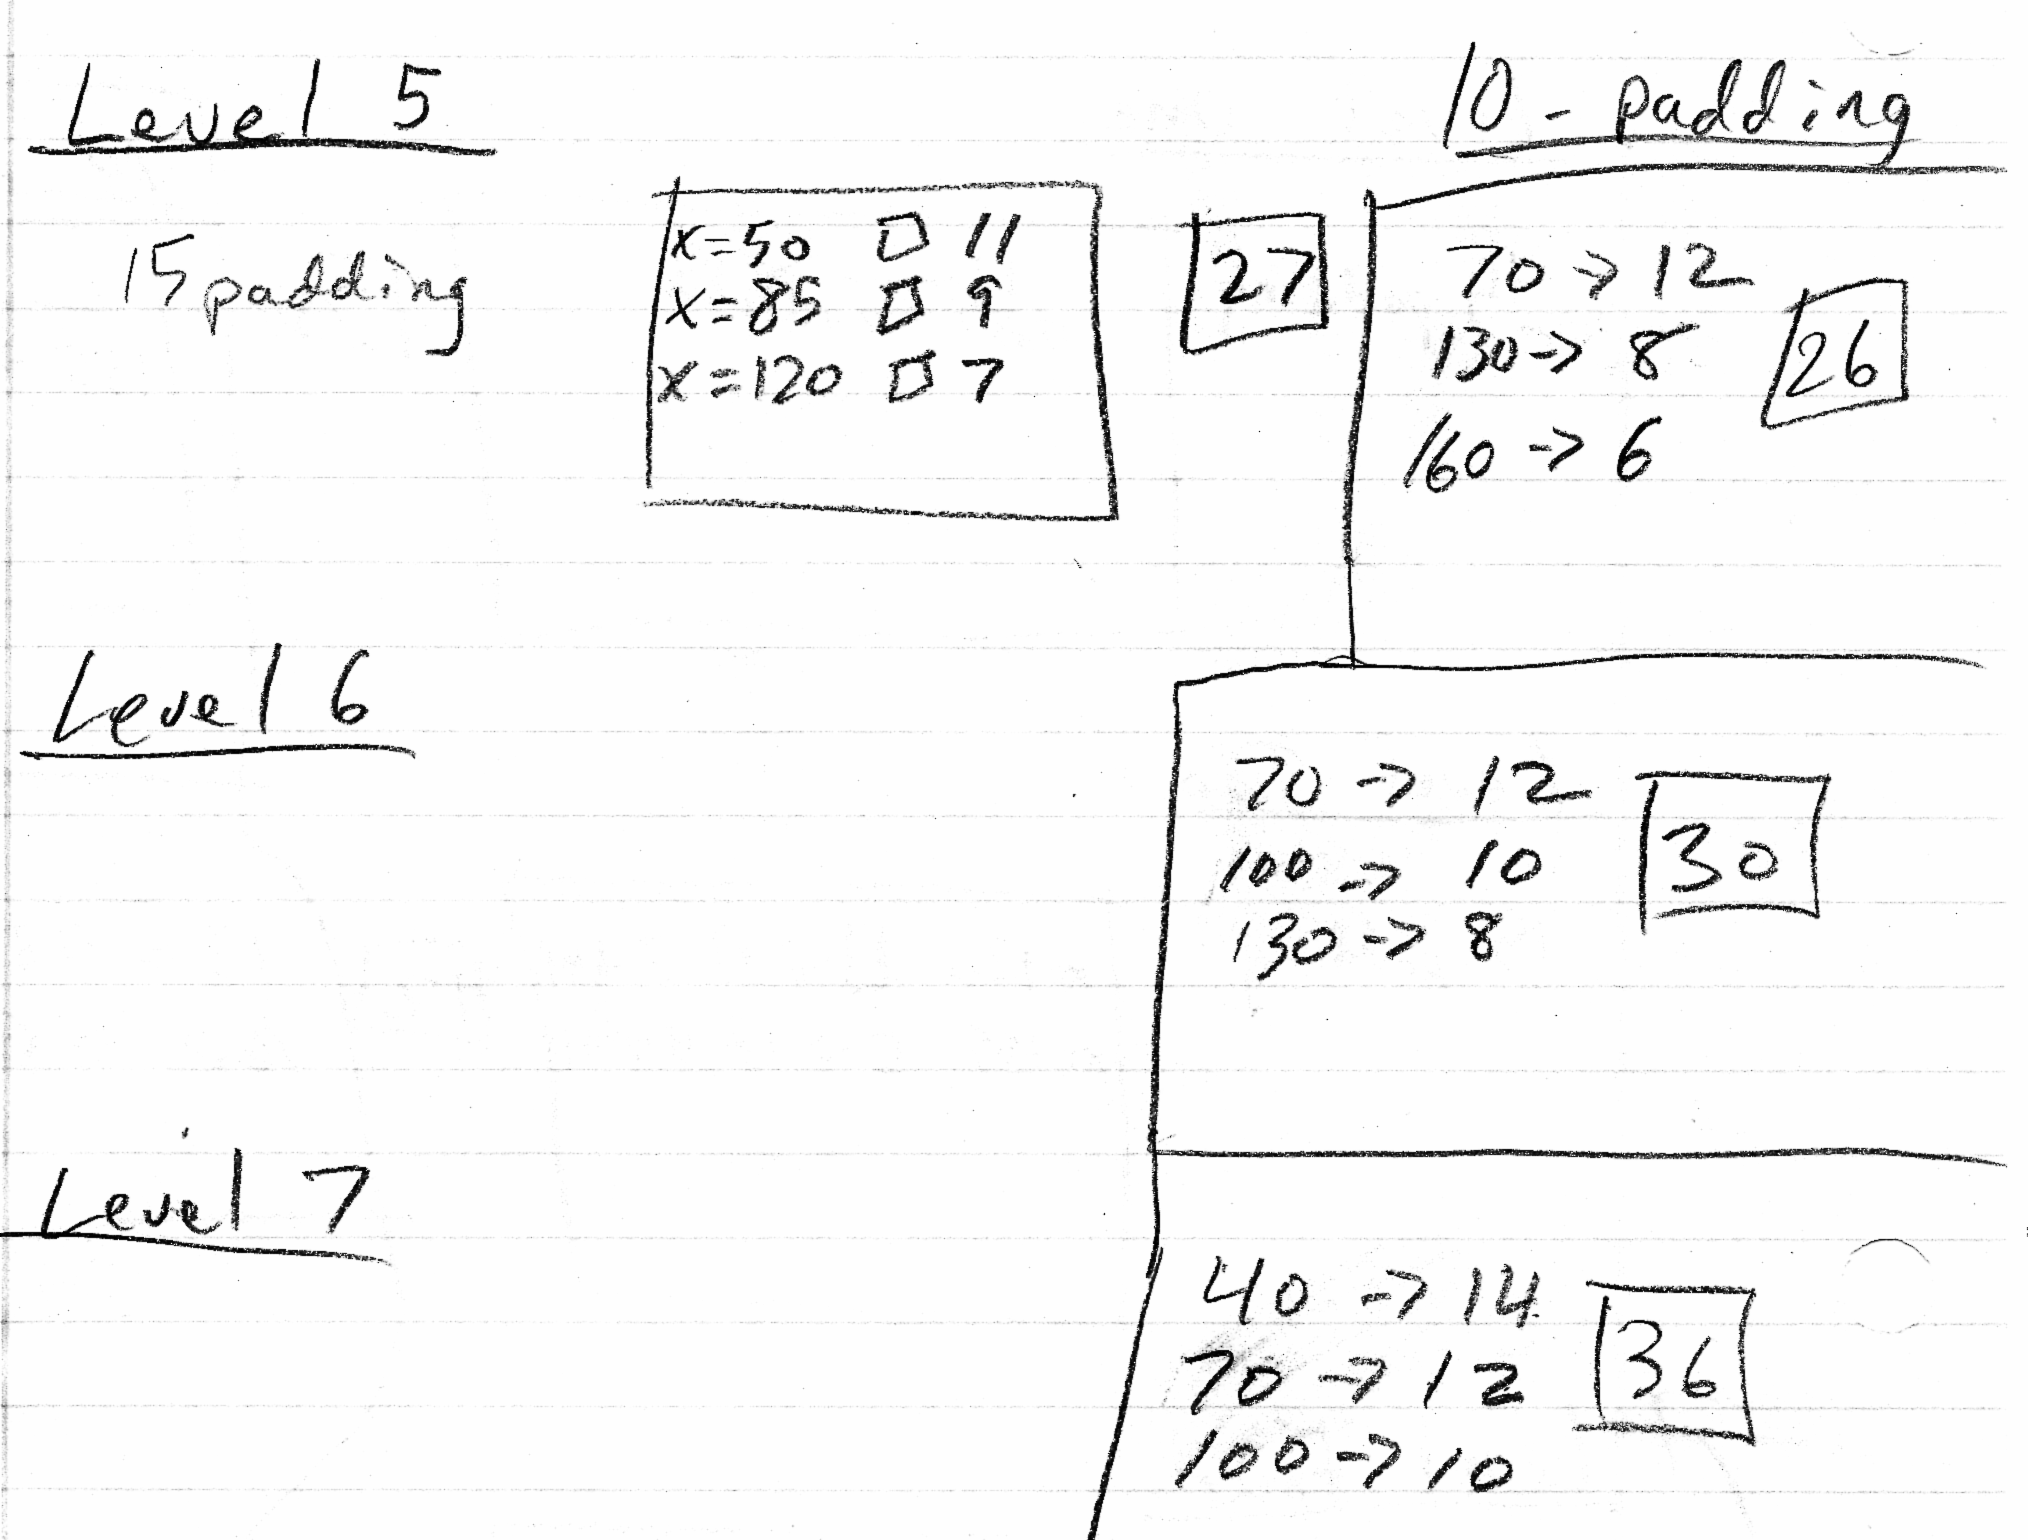 Level 5
10 - padding
15 padding
x=50 □ 11
x=85 □ 9
x=120 □ 7
27
70 -> 12
130 -> 8
160 -> 6
26
Level 6
70 -> 12
100 -> 10
130 -> 8
30
Level 7
40 -> 14
70 -> 12
100 -> 10
36